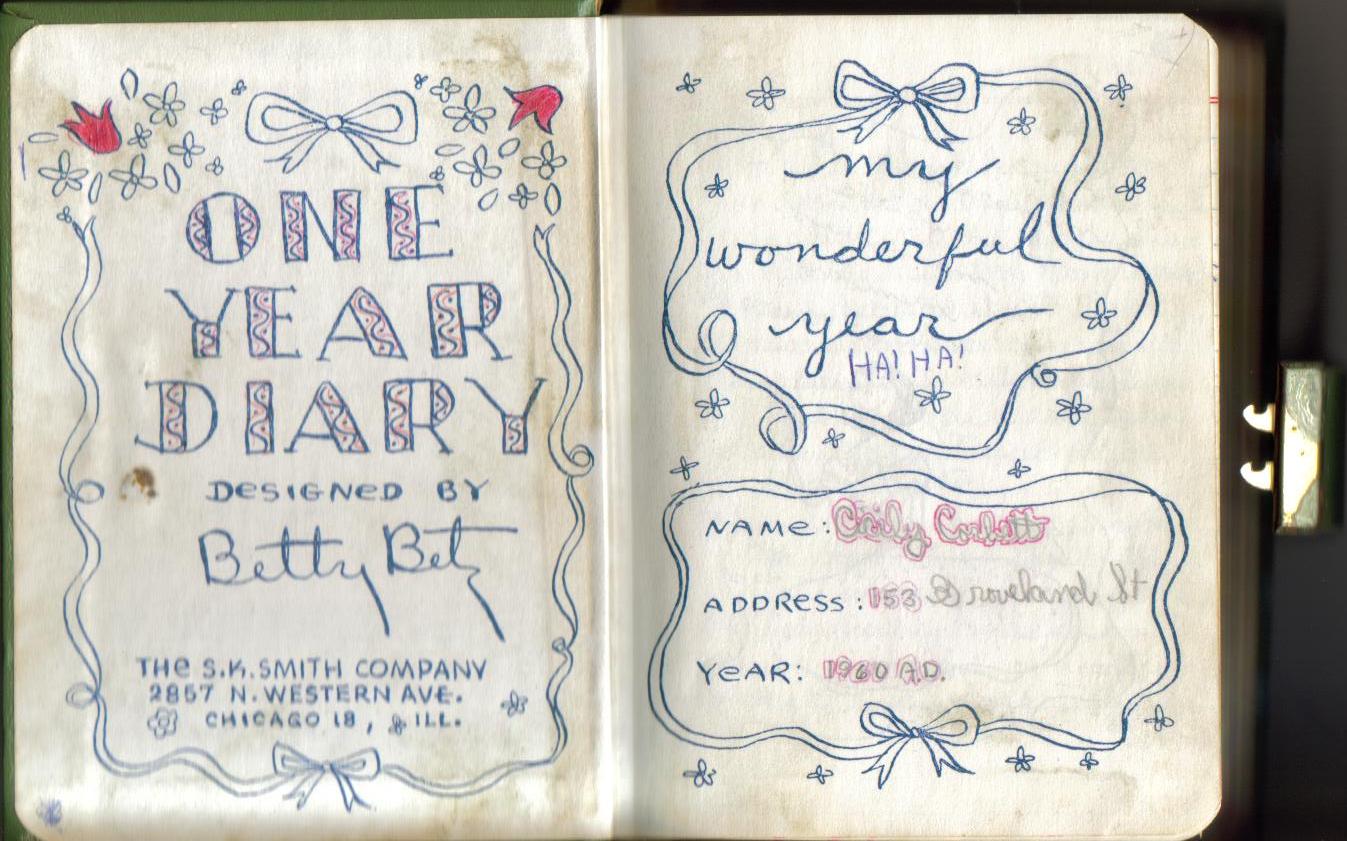 ONE
YEAR
DIARY
DESIGNED BY
Betty Betz
THE S.K. SMITH COMPANY
2857 N. WESTERN AVE.
CHICAGO 18, ILL.
my
wonderful
year
HA! HA!
NAME: Corbett
ADDRESS: 153 Groveland St
YEAR: 1960 A.D.